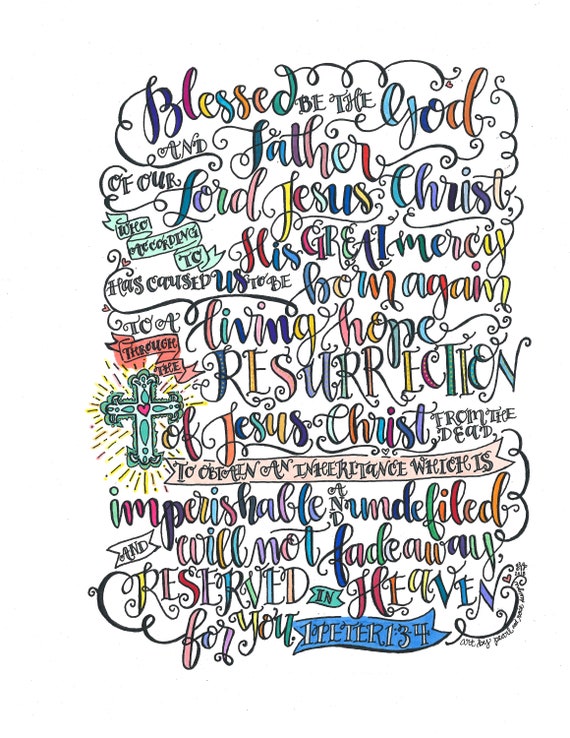 Blessed BE THE God
AND Father
OF OUR Lord Jesus Christ,
WHO ACCORDING TO His GREAT mercy
HAS CAUSED us TO BE born again
TO A living hope
THROUGH THE RESURRECTION
of Jesus Christ, FROM THE DEAD,
TO OBTAIN AN INHERITANCE WHICH IS
imperishable AND undefiled
AND will not fade away,
RESERVED IN HEAVEN
for YOU. 1 PETER 1:3-4
art by pearl